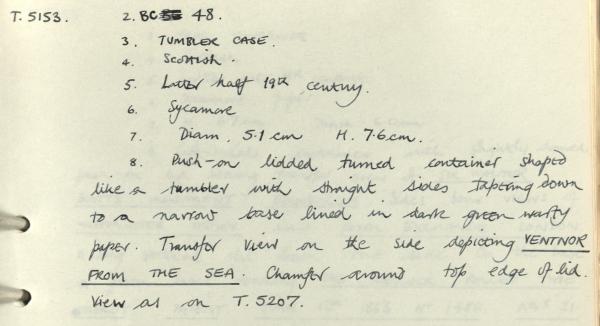 T. 5153. 2. BC 48.
3. TUMBLER CASE.
4. Scottish.
5. Latter half 19th century.
6. Sycamore
7. Diam. 5.1 cm H. 7.6 cm.
8. Push-on lidded turned container shaped
like a tumbler with straight sides tapering down
to a narrow base lined in dark green warty
paper. Transfer view on the side depicting VENTNOR
FROM THE SEA. Chamfer around top edge of lid.
View as on T. 5207.